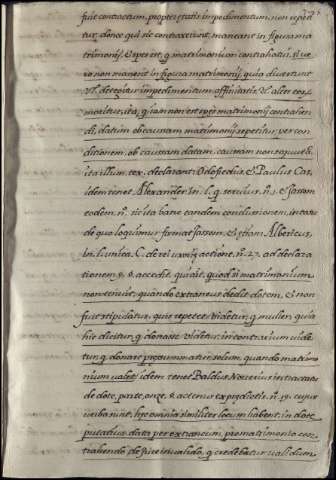 fuit contractum, propter ętatis impedimentum, non repeti
tur, donec qui sic contraxerint, maneant in figura ma
trimonij, & speretur, q matrimonium contrahatur, si ue
ro non manent in figura matrimonij, quia diuertunt
vl' detegitur impedimentum affinitatis, vl' alter
moritur, ita, q iam non est spes matrimonij contrahen
di, datum ob causam matrimonij repetitur, per con
dictionem, ob causam datam, causam non sequut.
ita illum tex. declarant Odofredus, & Paulus Cas.
idem tenet Alexander in l. q seruius, n. & Iason
eodem, n. sic ita hanc tandem conclusionem, in casu
de quo loquimur firmat Iason, & etiam Albericus,
in l. unica. C. de rei uxorię actione, n. 27. ad declara
tionem, & accedit, quia ut, quod si matrimonium
non tenuit, quando extraneus dedit dotem, & non
fuit stipulatus, quis repetet, videtur, q mulier, quia
hic dicitur, q donasse videtur, in contrarium uide
tur, q donare pręsumatur solum, quando matrimo
nium valet, idem tenet Baldus Nouellus in tractatu
de dote, parte, n. 19. cuius
uerba sunt, hęc omnia similiter locum habent, in dote
putatiua data per extraneum, pro matrimonio con
trahendo de iure inualido, q credebatur validum